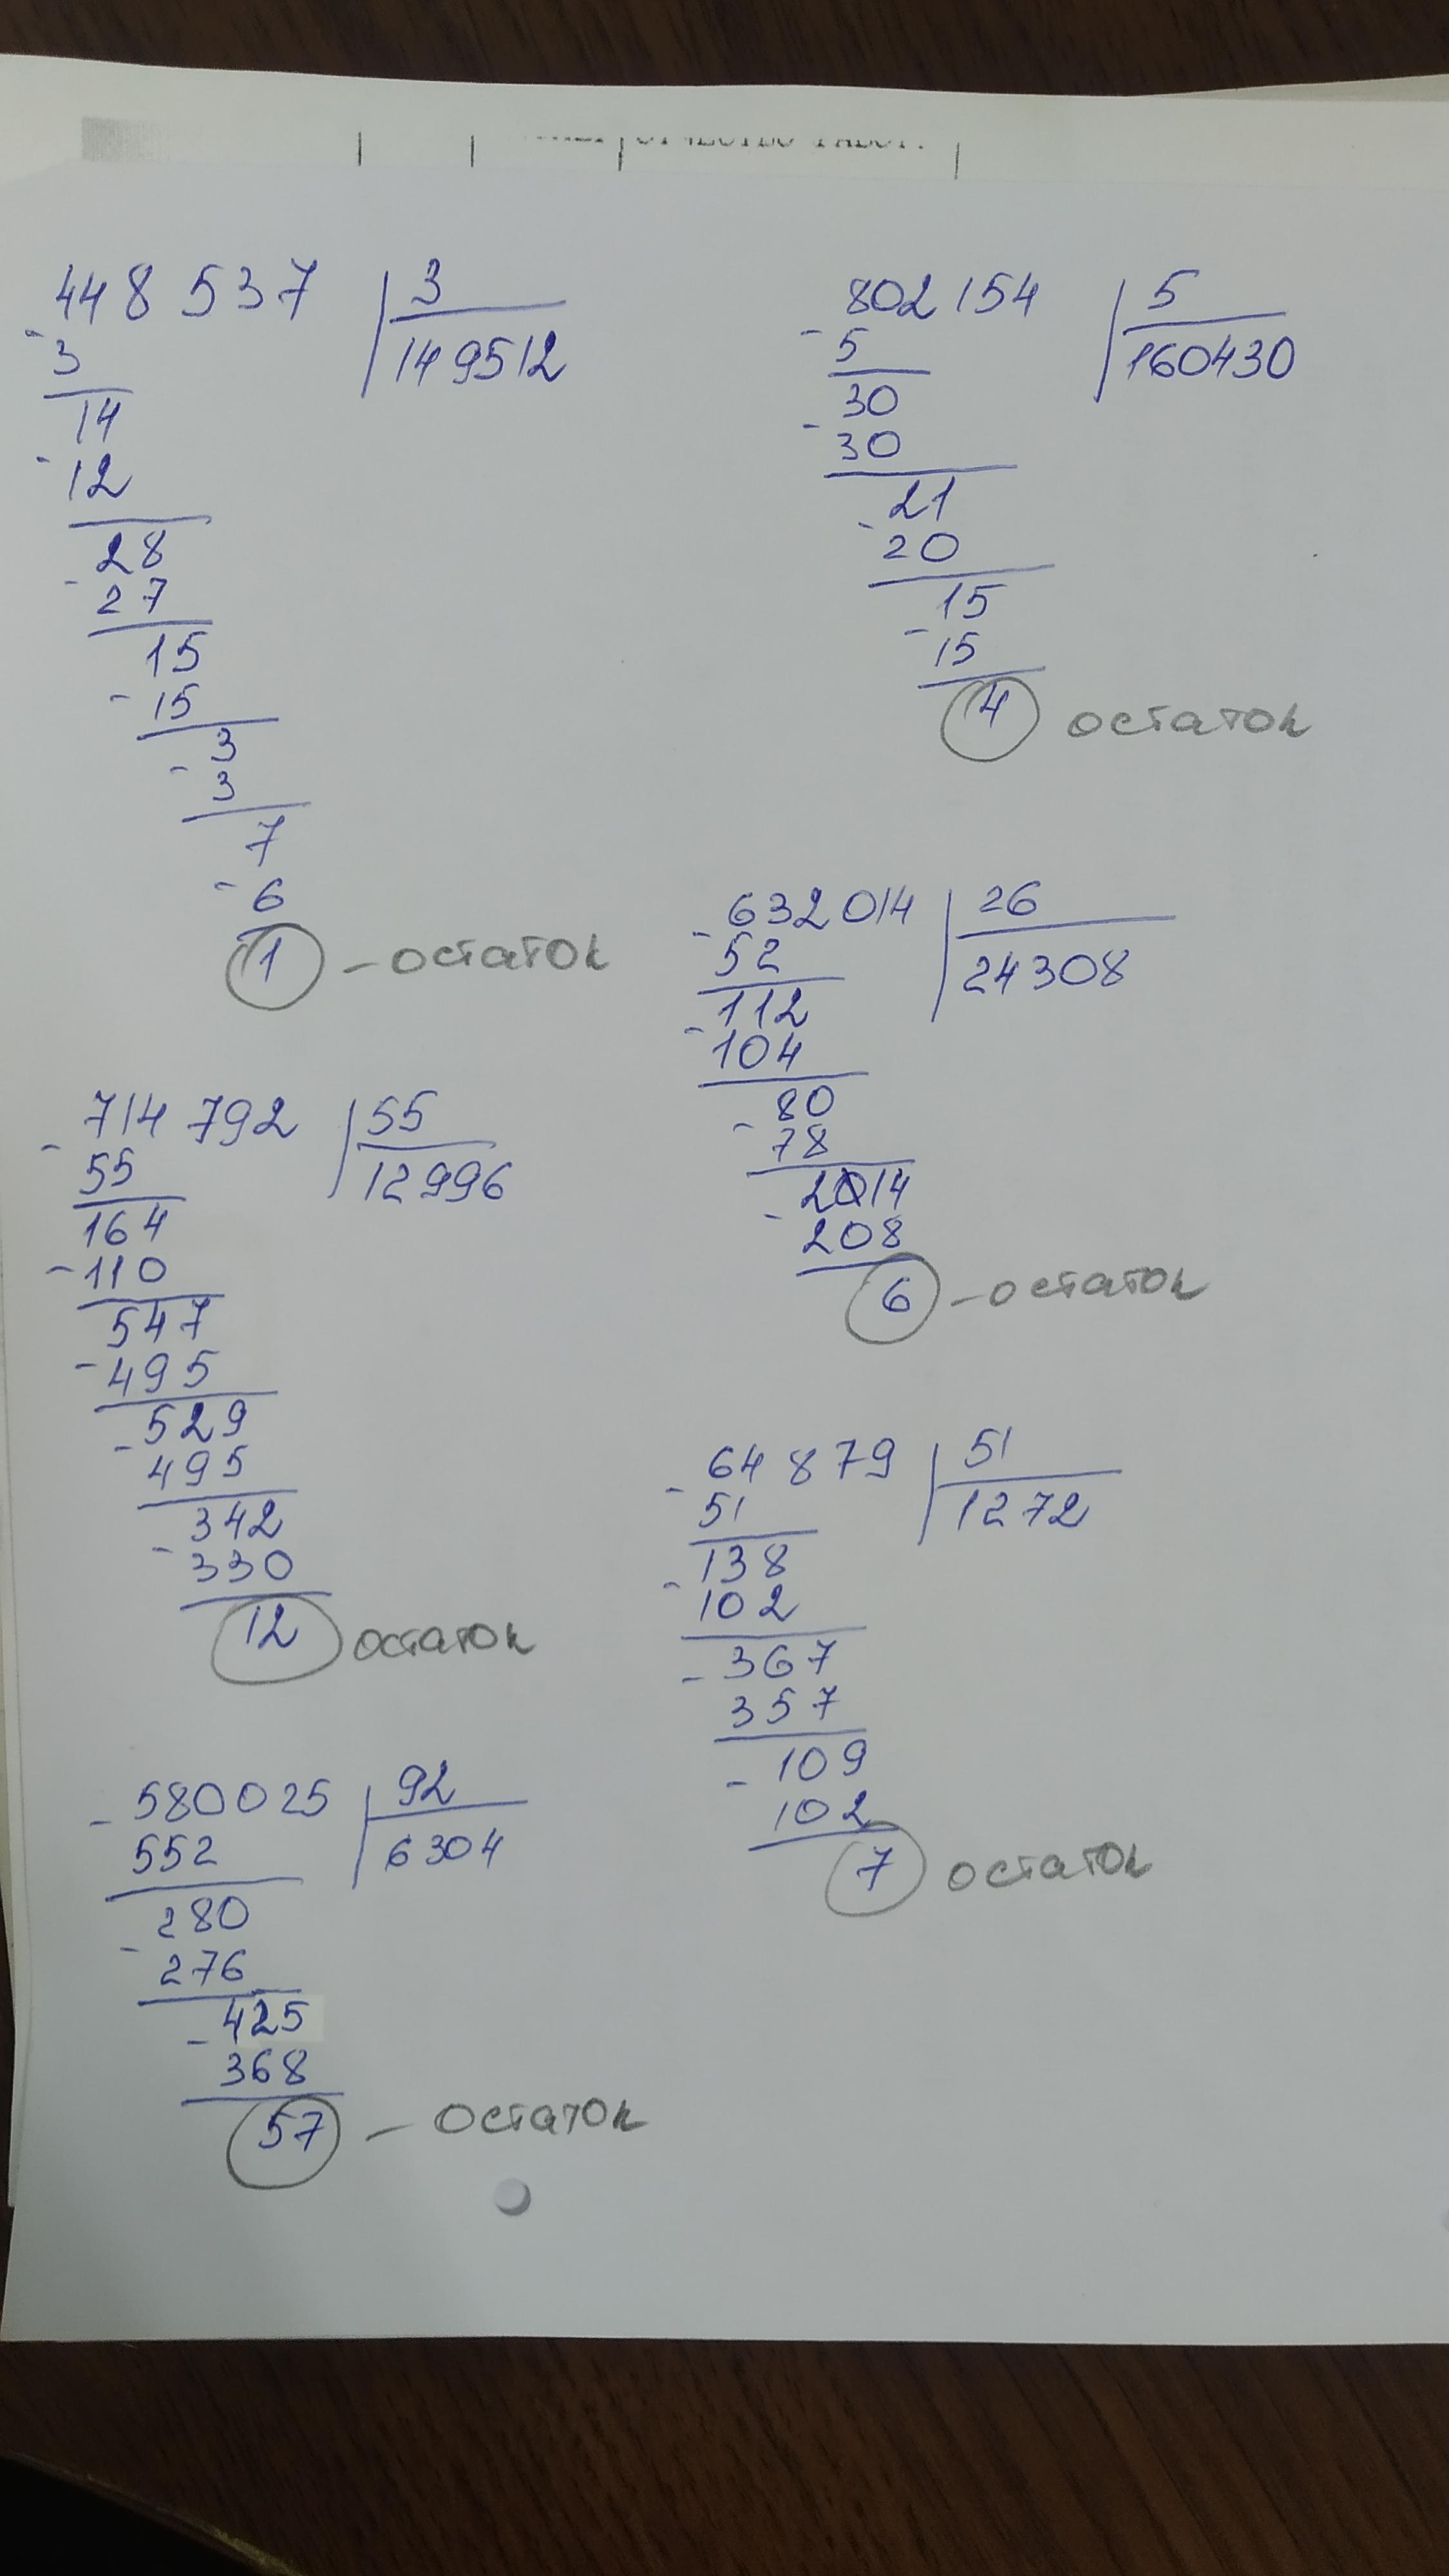 448 537 3
- 3 149512
14
- 12
28
- 27
15
- 15
3
- 3
7
- 6
1 - остаток
802 154 5
- 5 160430
30
- 30
21
- 20
15
- 15
4 остаток
- 632 014 26
52 24308
112
- 104
80
- 78
2014
- 208
6 - остаток
- 714 792 55
55 12996
164
- 110
547
- 495
529
- 495
342
- 330
12 остаток
- 64 879 51
51 1272
138
- 102
- 367
357
- 109
102
7 остаток
- 580025 92
552 6304
280
- 276
- 425
368
57 - остаток